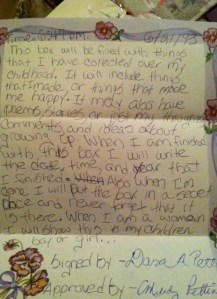 Time- 6:27 P.M. 6/21/93
This box will be filled with things
that I have collected over my
childhood. It will include things
that made, or things that made
me happy. It may also have
poems, stories or just my thoughts
comments and ideas about
growing up. When I am finished
with this box I will write
the date, time, and year that
I finished. Also When I'm
done I will put the box in a secret
place and never forget that it
is there. When I am a woman
I will show this to my children
boy or girl...
Signed by - Dana A.
Approved by -